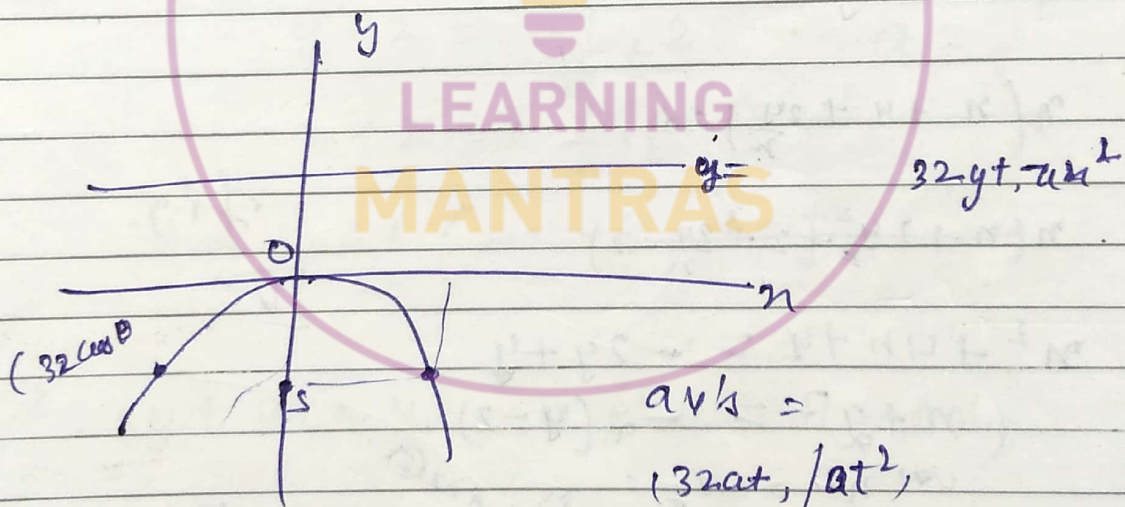 y
LEARNING
MANTRAS
y=
O
x
(32 cosθ
S
axis =
(32at, /at²,